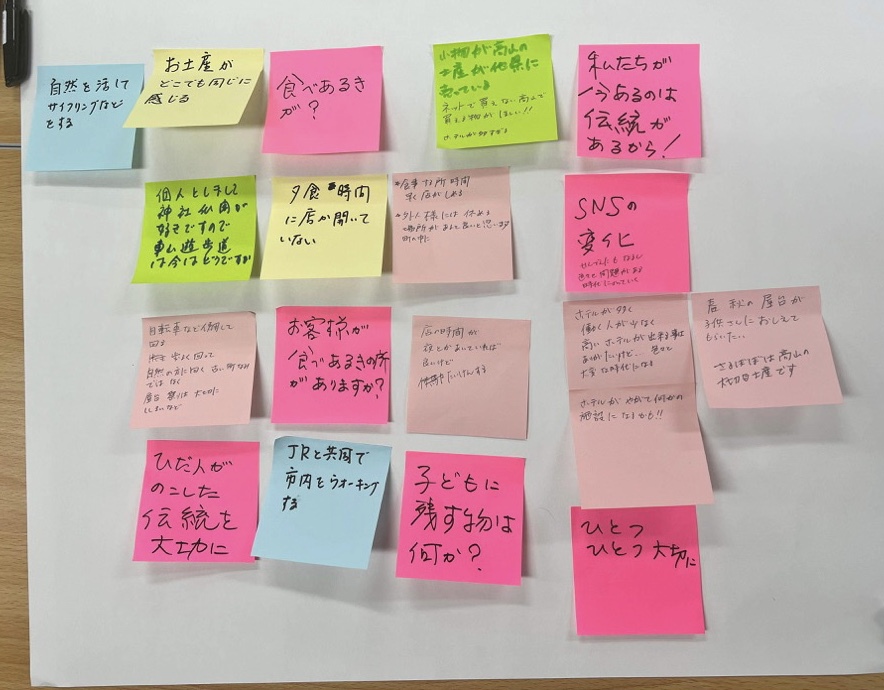 自然を活して
サイクリングなど
をする
お土産が
どこでも同じに
感じる
食べあるき
が?
小物が高山の
土産が他県に
売っている
ネットで買えない高山で
買える物がほしい!!
ホテルが多すぎる
私たちが
今あるのは
伝統が
あるから!
個人としまして
神社仏閣が
好きですので
東山遊歩道
は今はどうですか
夕食時間
に店が開いて
いない
*食事する所時間
早く店がしめる
*外人様には休める
場所があると良いと思います
町の中に
SNSの
変化
色々と問題がある
自転車など借りして
回る
自然の方に行く 古い町なみ
ではなく
屋台 祭りは大切に
お客様が
食べあるきの所
がありますか?
店の時間が
夜とかあいていれば
良いけど
ホテルが多く
働く人が少なく
高いホテルが出来る事は
ありがたいけど… 色々と
大変な時代になる
ホテルがやがて何かの
施設になるかも!!
春秋の屋台が
子供さんにおしえて
もらいたい..
さるぼぼは高山の
大切な土産です
ひだ人が
のこした
伝統を
大切に
JRと共同で
市内をウオーキング
する
子どもに
残す物は
何か?
ひとつ
ひとつ大切に